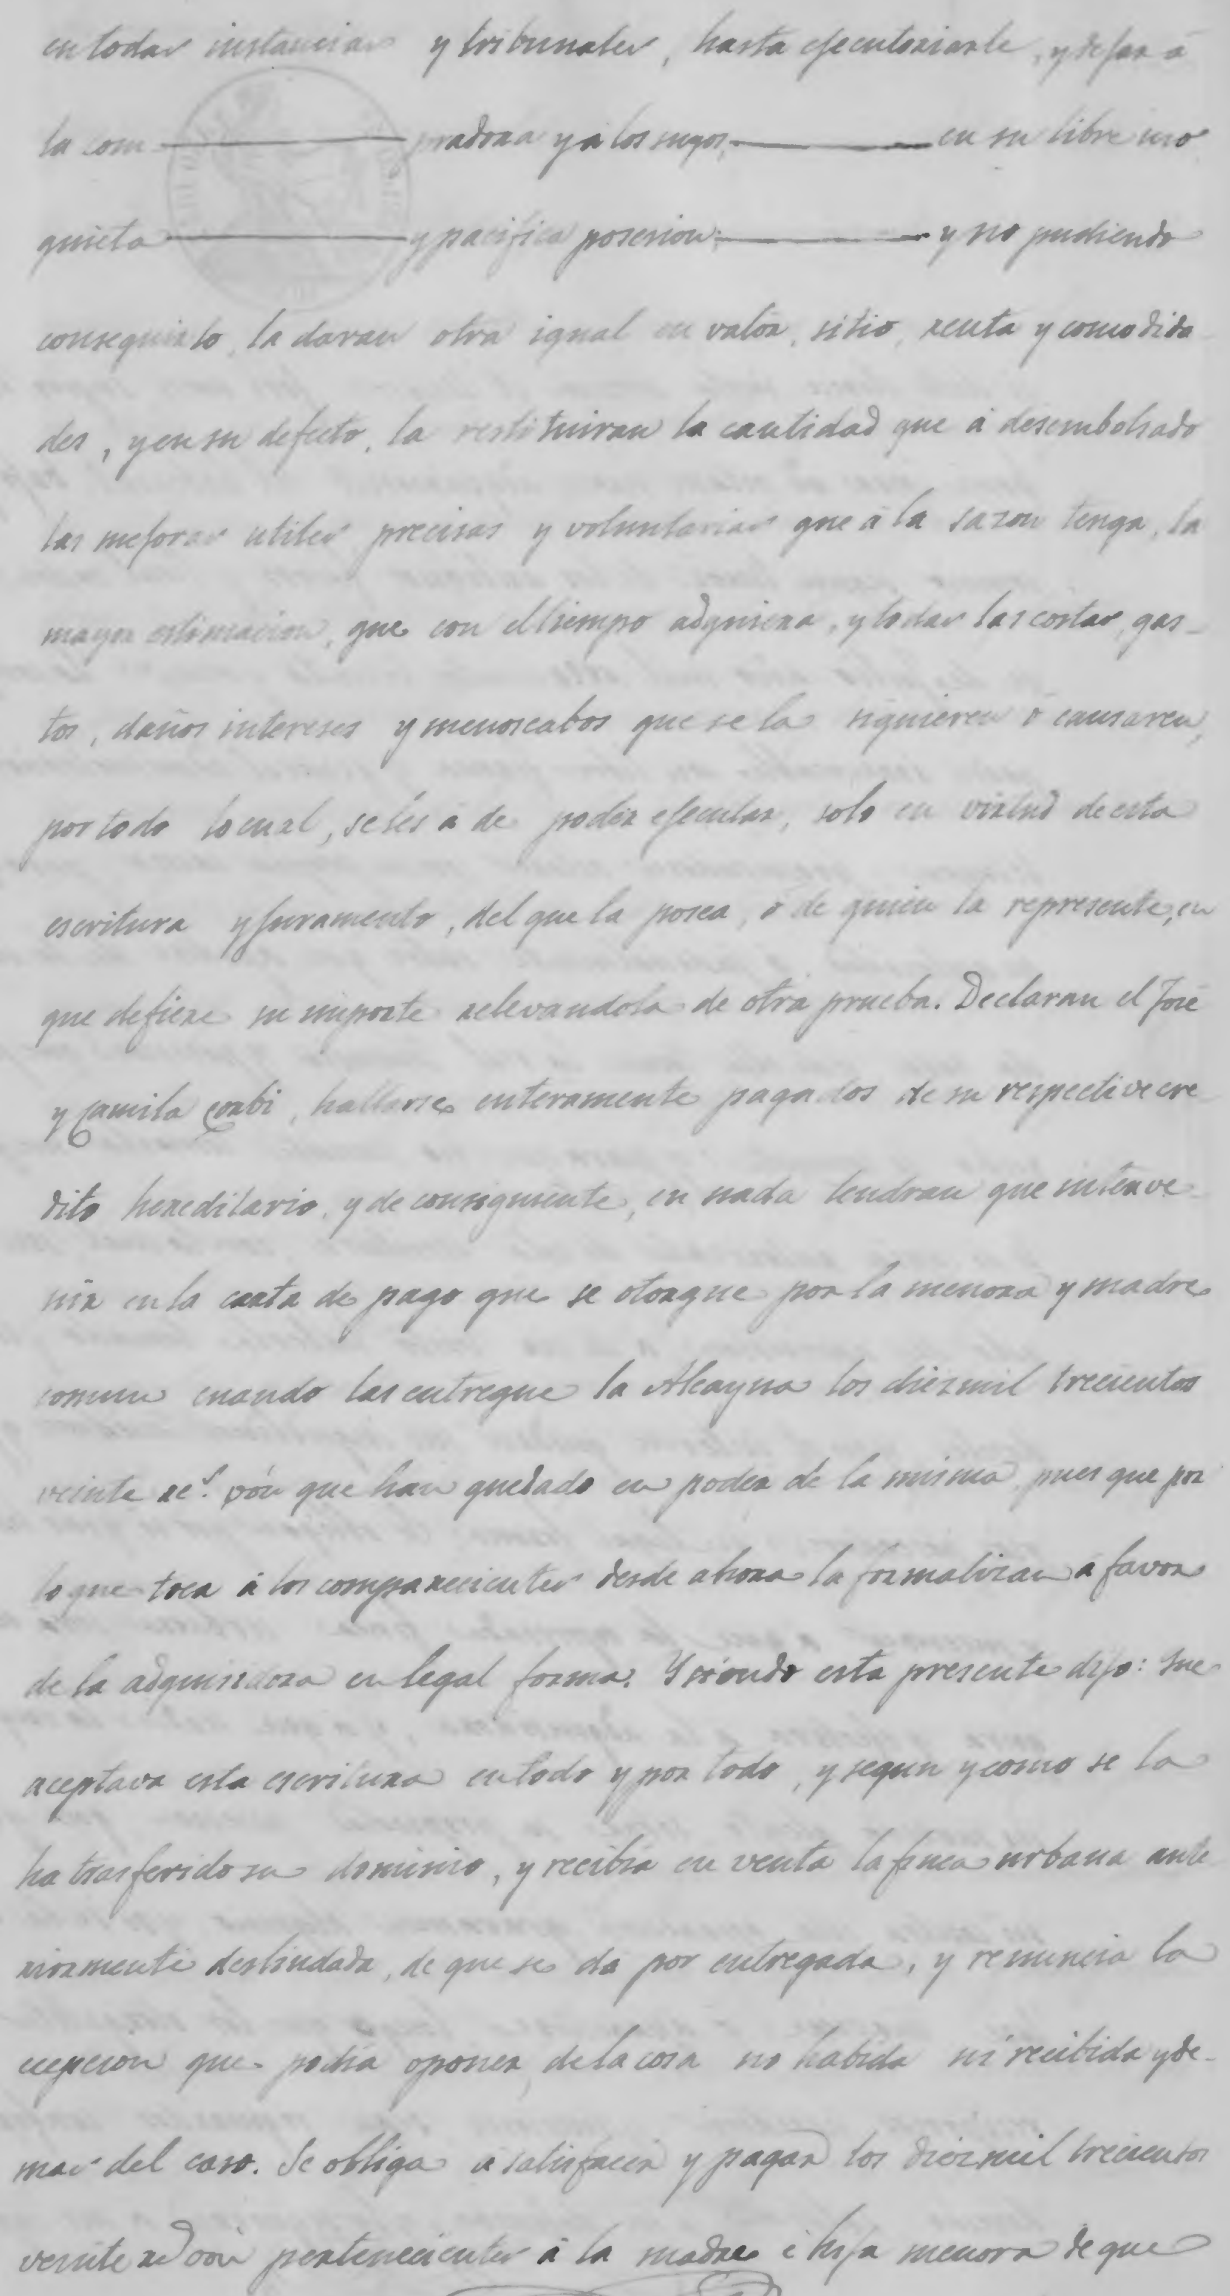 en todas instancias y tribunales, hasta ejecutoriarle, y dejar á
la com ——— pradora y á los suyos, ——— en su libre uso
quieta ——— y pacifica posesion; ——— y no pudiendo
conseguirlo, la daran otra igual en valor, sitio, renta y comodida
des, y en su defecto, la restituiran la cantidad que á desembolsado
las mejoras utiles precisas y voluntarias que á la sazon tenga, la
mayor estimacion, que con el tiempo adquiera, y todas las costas, gas-
tos, daños intereses y menoscabos que se la siguieren ó causaren,
por todo lo cual, se les á de poder ejecutar, solo en virtud de esta
escritura y juramento, del que la posea, ó de quien la represente, en
que defiere su importe relevandola de otra prueba. Declaran el José
y Camila Corbi, hallarse enteramente pagados de su respective cre
dito hereditario, y de consiguiente, en nada tendran que interve
nir en la carta de pago que se otorgue por la menora y madre
comun cuando las entregue la Alcayna los diez mil trecientos
veinte rs. vón que han quedado en poder de la misma, pues que por
lo que toca á los comparecientes desde ahora la formalizan á favor
de la adquisidora en legal forma. Y siendo esta presente dijo: Que
aceptava esta escritura en todo y por todo, y segun y como se la
ha trasferido su dominio, y recibia en venta la finca urbana ante
riormente deslindada, de que se da por entregada, y renuncia la
ecepcion que podia oponer, de la cosa no habida ni recibida y de-
mas del caso. Se obliga á satisfacer y pagar los diez mil trecientos
veinte rs vón pertenecientes á la madre é hija menora de que